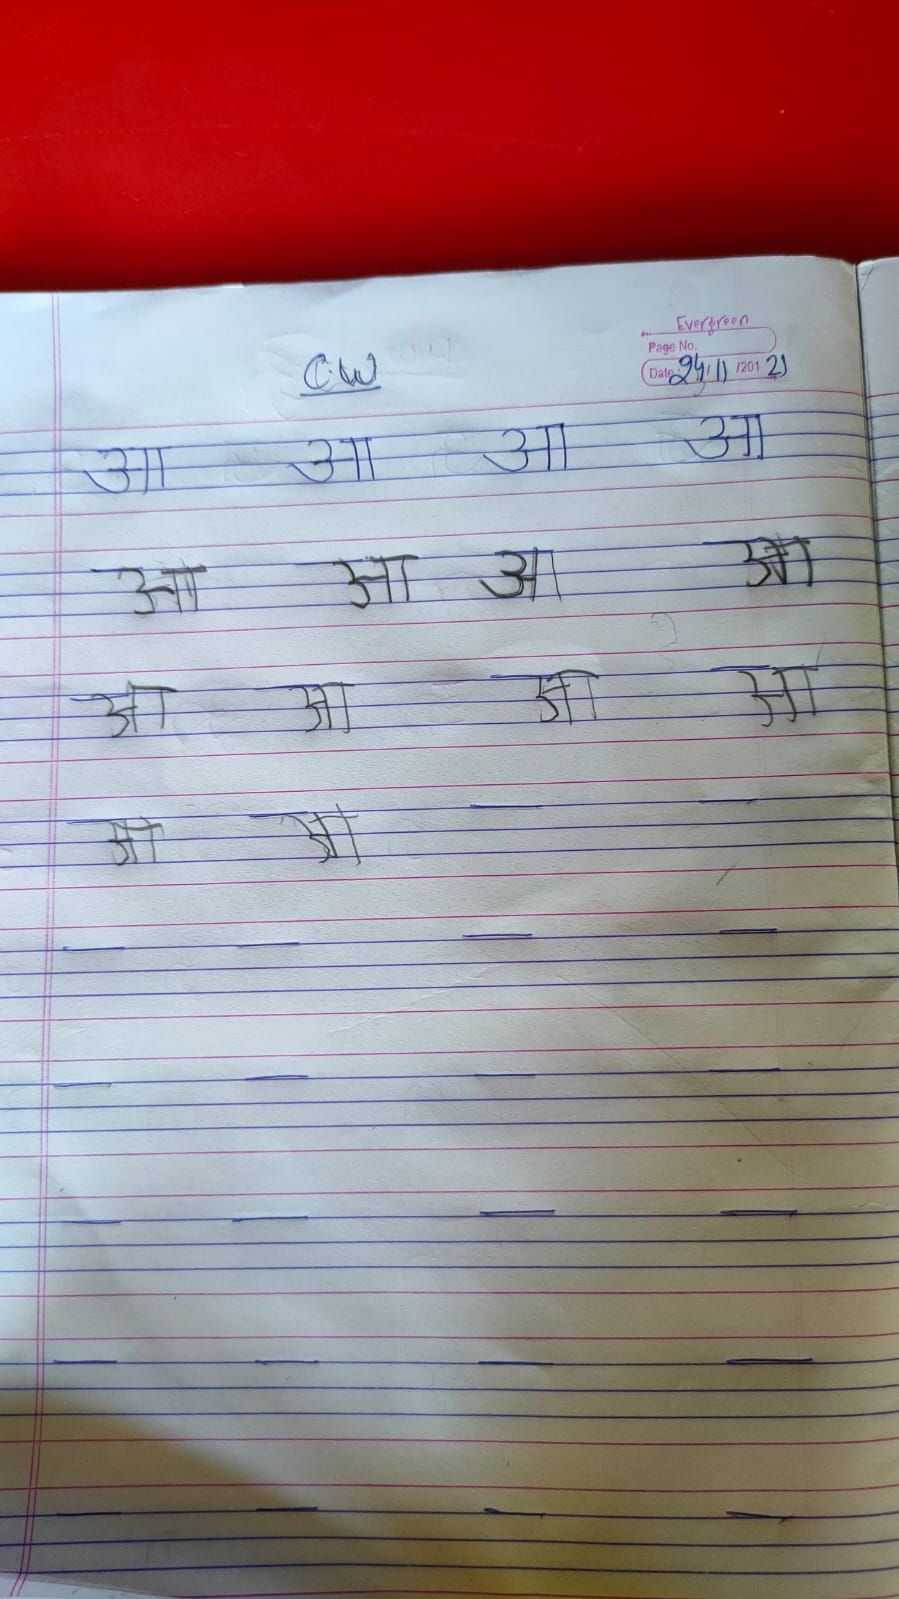 Evergreen
Page No.
C.W
Date 24/11/201 21
आ आ आ आ
आ आ आ आ
आ आ आ आ
आ आ